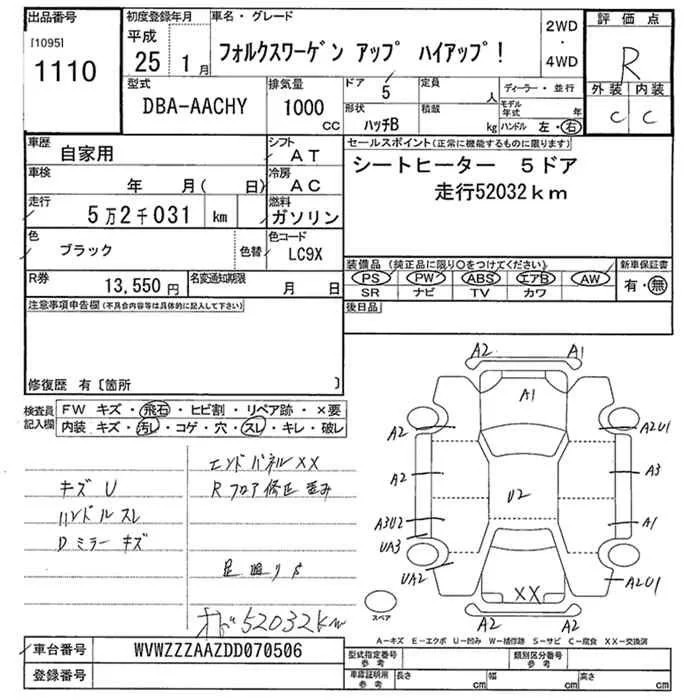 出品番号 初度登録年月 車名・グレード 2WD・4WD 評価点
[1095] 1110 平成 25 1月 フォルクスワーゲン アップ ハイアップ! R
型式 排気量 ドア 定員 ディーラー・並行 外装 内装
DBA-AACHY 1000 CC 5 人 モデル年式 年 C C
形状 積載
ハッチB kg ハンドル 左・右
車歴 自家用 シフト AT セールスポイント(正常に機能するものに限ります)
車検 年 月( 日) 冷房 AC シートヒーター 5ドア
走行 5万2千031 km 燃料 ガソリン 走行52032km
色 ブラック 色替 色コード LC9X
装備品(純正品に限り〇をつけてください) 新車保証書
R券 13,550円 名変通知期限 月 日 PS PW ABS エアB AW 有・無
SR ナビ TV カワ
注意事項申告欄(不具合内容等は具体的に記入して下さい) 後日品
修復歴 有〔箇所 〕
検査員記入欄 FW キズ・飛石・ヒビ割・リペア跡・×要
内装 キズ・汚レ・コゲ・穴・スレ・キレ・破レ
エンドパネルXX
キズU Rフロア修正歪み
ハンドルスレ
Dミラーキズ
足廻りサ
オド52032km
A2 A1
A1
A2 A2U1
A2 A3
U2
A3U2 A1
UA3
UA2 A2U1
XX
A2 A2
スペア
A-キズ E-エクボ U-凹み W-補修跡 S-サビ C-腐食 XX-交換済
車台番号 WVWZZZAAZDD070506 型式指定番号 参考 類別区分番号 参考
登録番号 車庫証明用 参考 長さ cm 幅 cm 高さ cm